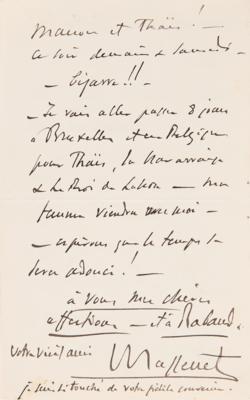 Manon et Thaïs !
Ce soir demain & samedi –
– bizarre !! –
– Je vais aller passer 8 jours
à Bruxelles et en Belgique
pour Thaïs, la Navarraise
& Le Roi de Lahore – ma
femme viendra avec moi –
– espérons que le temps se
sera adouci ! –
à vous mes chères
affections – et à Rabaud.
votre vieil ami
Massenet
je suis si touché de votre fidèle souvenir.